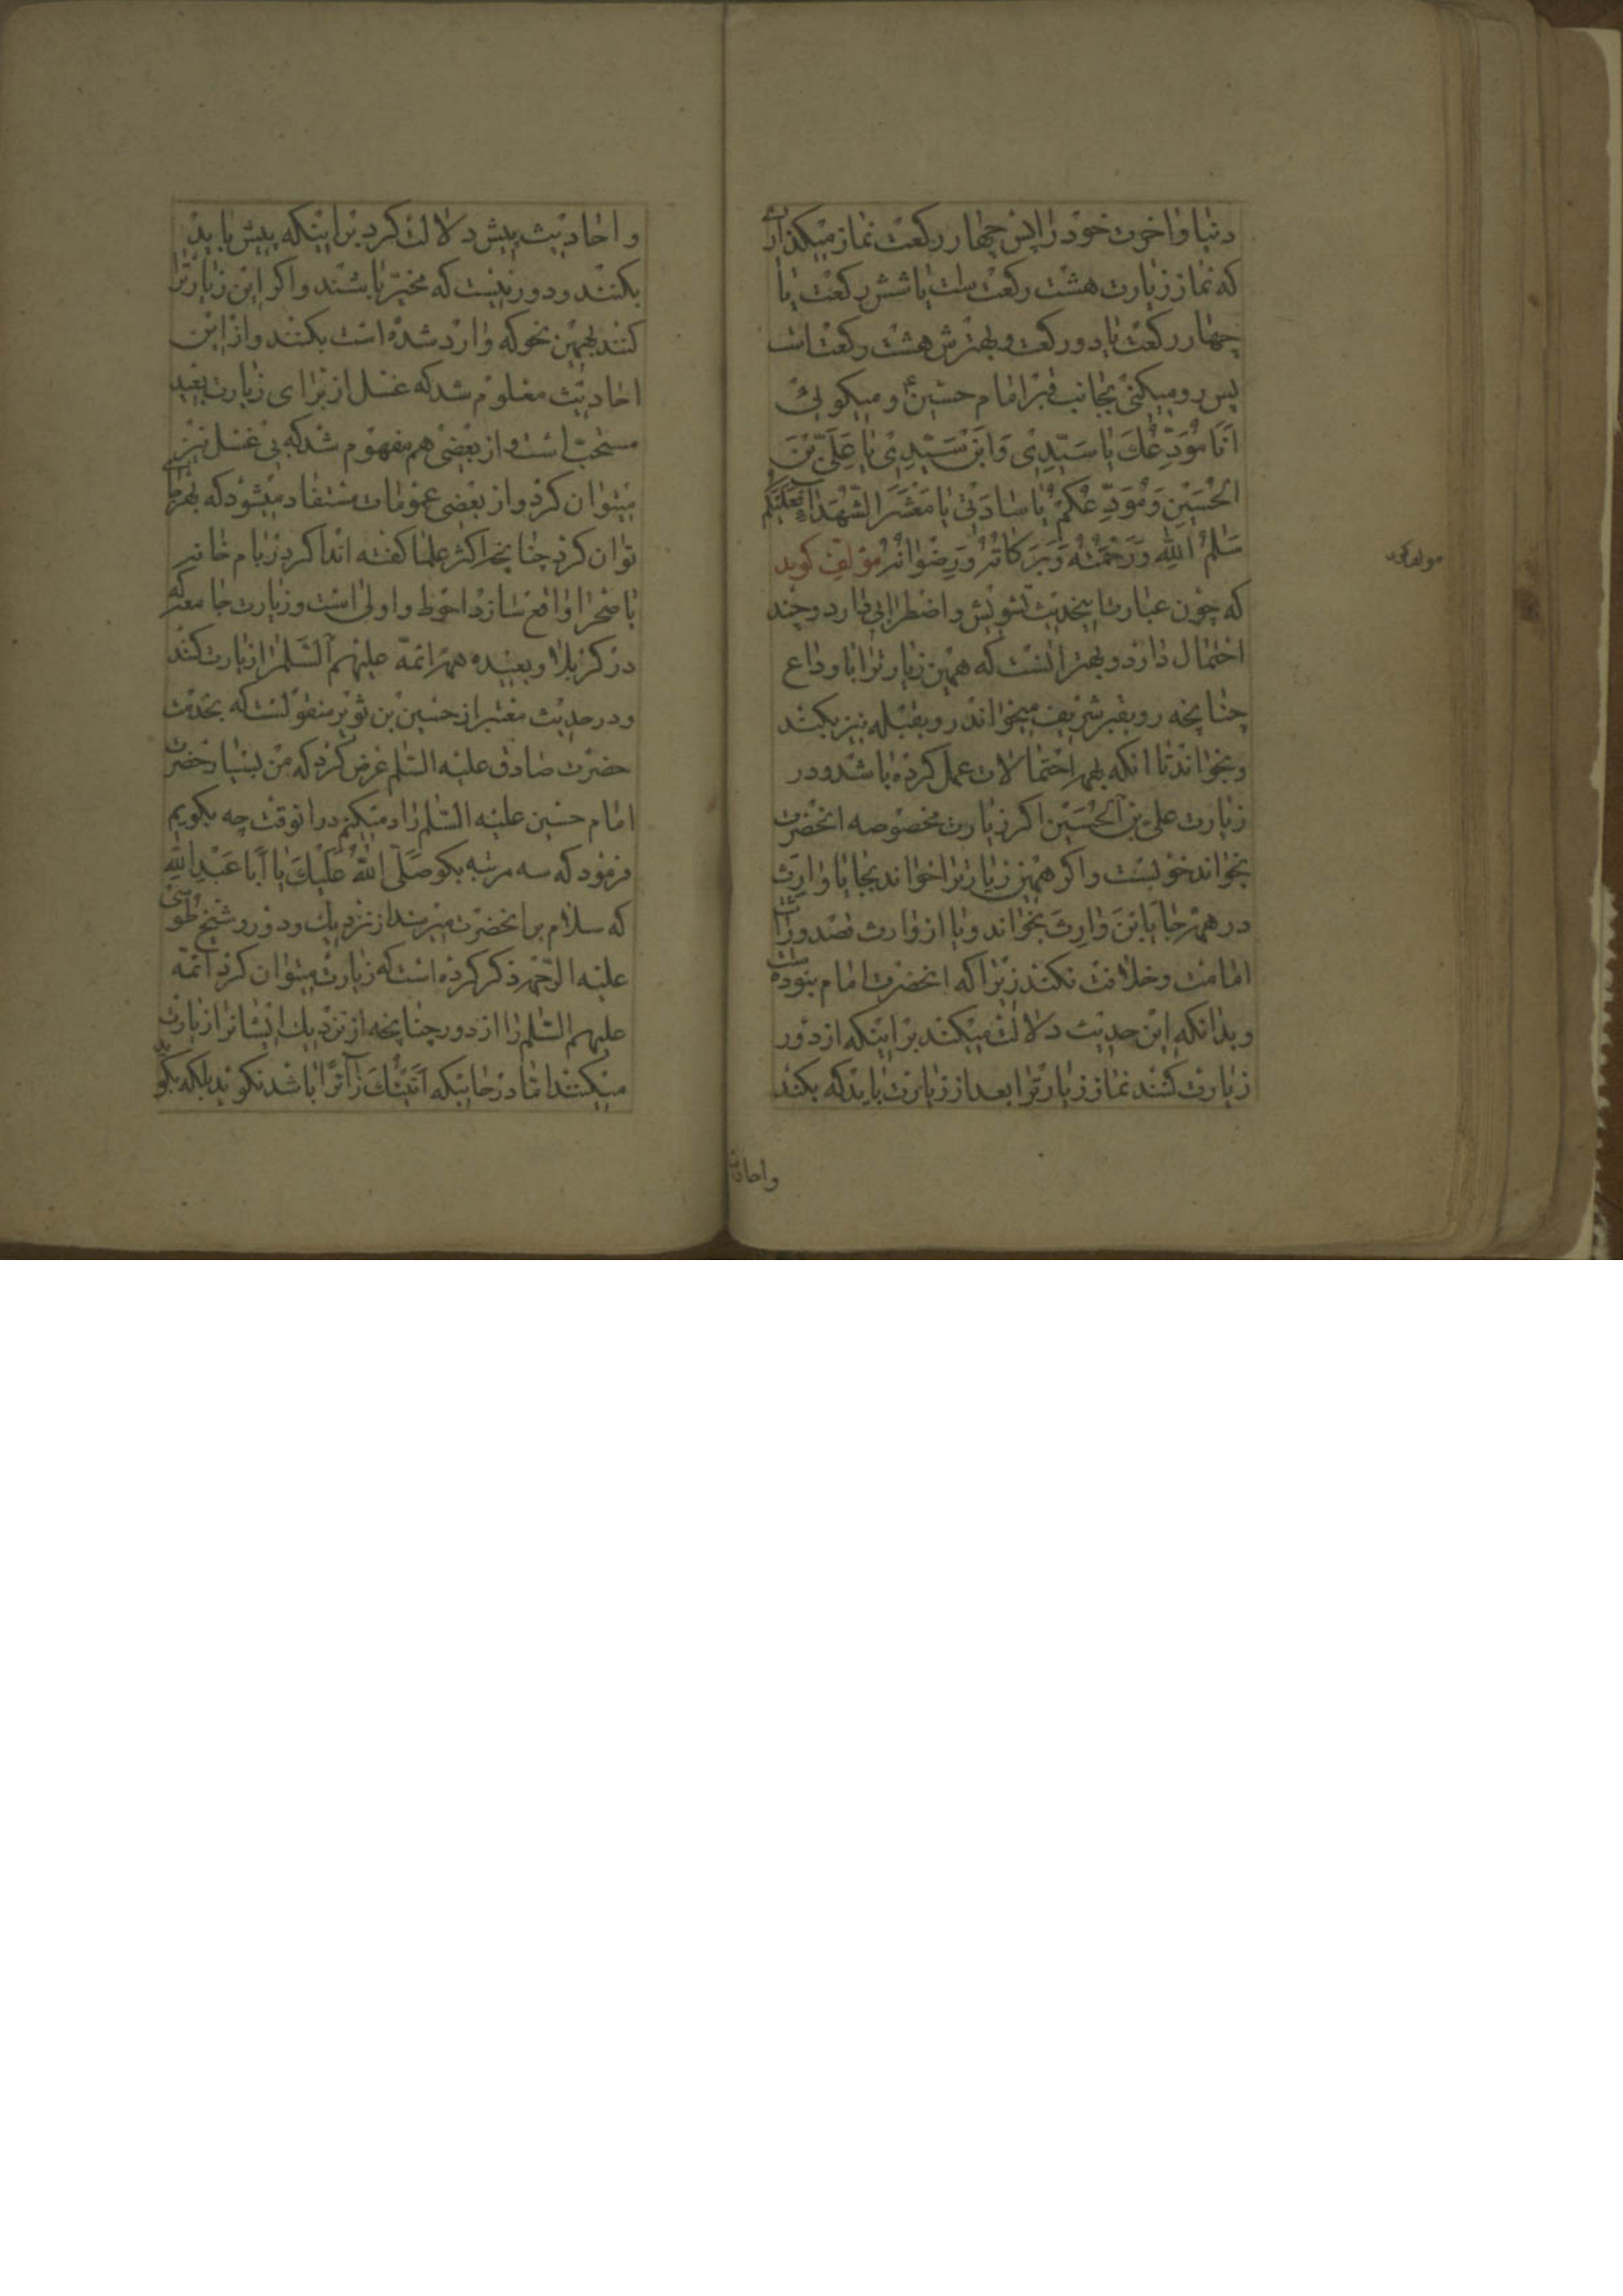 دنیا و اخرت خود را پس چهار رکعت نماز میکذاری
که نماز زیارت هشت رکعت است یا شش رکعت یا
چهار رکعت یا دو رکعت و بهترش هشت رکعت است
پس رو میکنی بجانب قبر امام حسین ع و میکوئی
اَنَا مُوَدِّعُكَ یا سَیِّدِی وَابْنَ سَیِّدِی یا عَلِیَّ بْنَ
الْحُسَیْنِ وَمُوَدِّعُكُمْ یا سَادَتِی یا مَعْشَرَ الشُّهَدَاءِ فَعَلَیْكُمْ
سَلٰمُ اللّٰهِ وَرَحْمَتُهُ وَبَرَكَاتُهُ وَرِضْوَانُهُ مؤلف کوید
مولف کوید
که چون عبارت اینحدیث تشویش و اضطرابی دارد و چند
احتمال دارد و بهتر انست که همین زیارترا با وداع
چنانچه رو بقبر شریف میخواند رو بقبله نیز بکند
و بخواند تا انکه بهمه احتمالات عمل کرده باشد و در
زیارت علی بن الحُسَیْن اکر زیارت مخصوصه انحضرت
بخواند خوبست و اکر همین زیارترا خواند بجای یا وارِث
در همه جا یَابْنَ وارِثَ بخواند و یا از وارث قصد وراثت
امامت و خلافت نکند زیرا که انحضرت امام نبوده است
و بدانکه این حدیث دلالت میکند بر اینکه از دور
زیارت کنند نماز زیارترا بعد از زیارت باید که بکند
واحادیث
و احادیث پیش دلالت کرد بر اینکه پیش باید
بکنند و دور نیست که مخیّر باشند و اکر این زیارترا
کنند بهمین نحو که وارد شده است بکنند و از این
احادیث معلوم شد که غسل از برای زیارت بعید
مستحبّ است و از بعضی هم مفهوم شد که بی غسل نیز
میتوان کرد و از بعضی عمومات مستفاد میشود که بهر جا
توان کرد چنانچه اکثر علما کفته اند اکر در بام خانه
یا صحرا واقع سازد احوط و اولی است و زیارت جامعه که
در کربلا و بعیده همه ائمّه علیهم السَّلٰم را زیارت کنند
و در حدیث معتبر از حسین بن ثویر منقولست که بخدمت
حضرت صادق علیه السّلٰم عرض کرد که من بسیار حضرت
امام حسین علیه السّلٰم را یاد میکنم در انوقت چه بکویم
فرمود که سه مرتبه بکو صَلَّی اللّٰهُ عَلَیْكَ یا اَبا عَبْدِ اللّٰهِ
که سلام بر انحضرت میرسد از نزدیك و دور و شیخ طوسی
علیه الرّحمه ذکر کرده است که زیارت میتوان کرد ائمّه
علیهم السّلٰم را از دور چنانچه از نزدیك ایشانرا زیارت
میکنند امّا در جائیکه اَتَیْتُكَ زائِرًا باشد نکوئید بلکه بکو